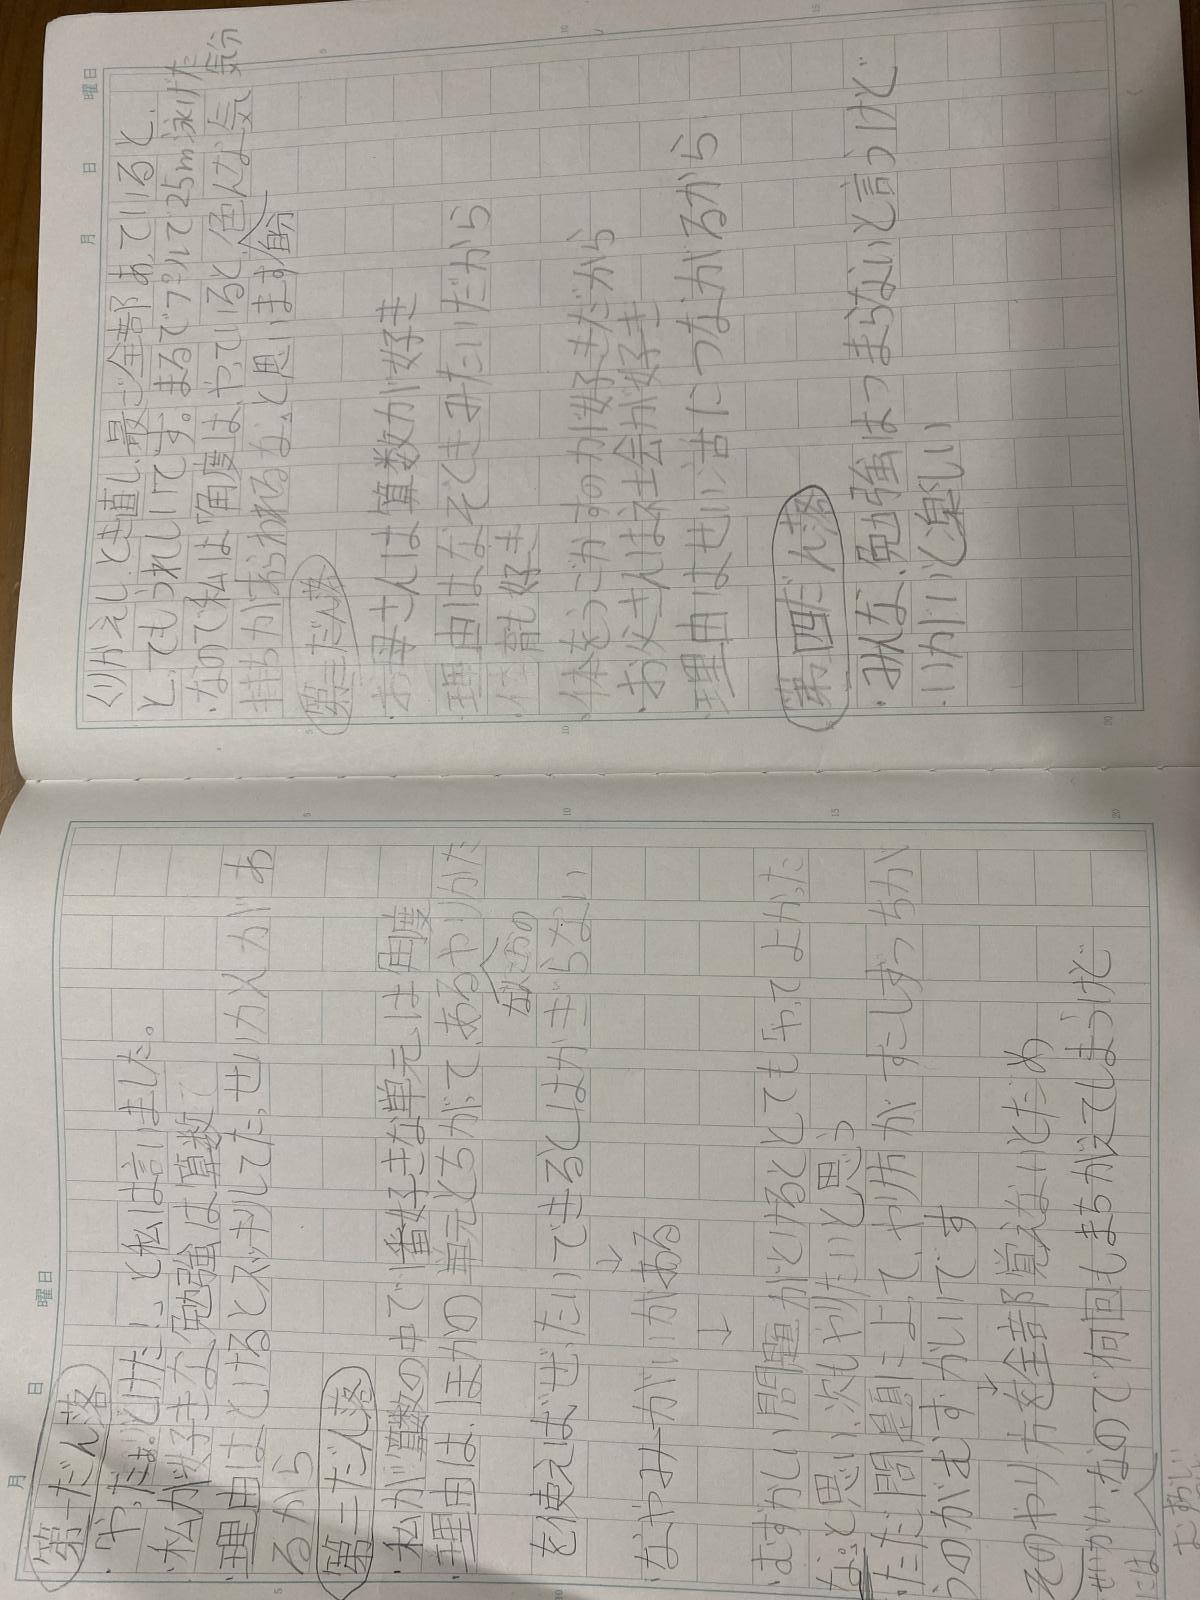 月 日 曜日
第一だん落
・やったぁ。とけた。と私は言いました。
・私が好きな勉強は算数
・理由はとけるとスッキリしてたっせいかんがあ
るから
第二だん落
・私が算数の中で一番好きな単元は角度
・理由は、ほかの単元とちがって、あるやりかた
故こあの
を使えばぜったいできるとはかぎらない
↓
・なやみがいがある
↓
・むずかしい問題がとけるととても「やってよかった
な。」と思い、次もやりたいと思う
・ただ問題によって、やり方がすこしずつちが
うのがむずかしいです
↓
そのやり方を全部覚えないとだめ
なので何回もまちがえてしまうけど
月 日 曜日
くりかえしとき直し、最ご全部あっていると、
とってもうれしいです。まるでプールで25m泳げた
・なので私は角度は、やっていると、色んな気分
持ちがあらわれるな、と思います
・第三だん落
・お母さんは算数が好き
・理由はなぞときみたいだから
・体育も好き
・体をうごかすのが好きだから
・お父さんは社会が好き
・理由はせい活につながるから
第四だん落
・みんな、勉強はつまらないと言うけど
・いがいと楽しい